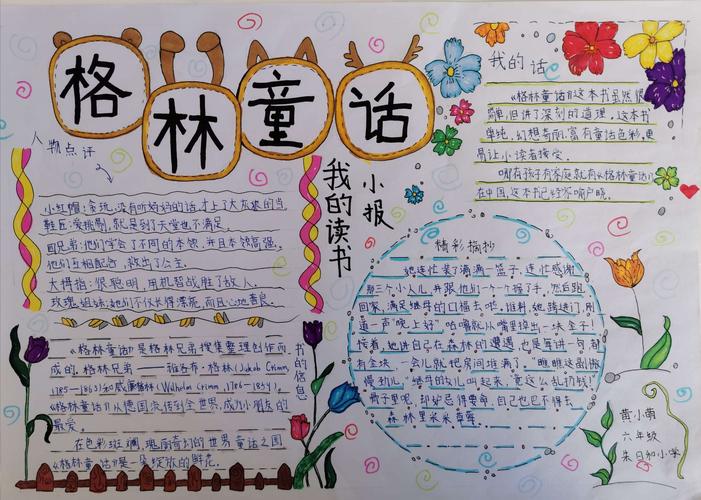 格林童话
我的读书
小报
人物点评
小红帽:贪玩,没有听妈妈的话,才上了大灰狼的当
鞋匠:爱挑剔,就是到了天堂也不满足。
四兄弟:他们学会了不同的本领,并且本领高强,
他们互相配合,救出了公主。
大拇指:很聪明,用机智战胜了敌人。
玫瑰姐妹:她们不仅长得漂亮,而且心地善良。
我的话
《格林童话》这本书虽然很
简单,但讲了深刻的道理。这本书
单纯,幻想奇丽,富有童话色彩,更
易让小读者接受。
哪有孩子有家庭就有《格林童话》
在中国,这本书已经家喻户晓。
我的信息
《格林童话》是格林兄弟搜集整理创作而
成的。格林兄弟——雅各布·格林(Jakob Grimm,
1785-1863)和威廉格林(Wilhelm Grimm,1786-1859),
《格林童话》从德国流传到全世界,成为小朋友的
最爱。
在色彩斑斓,瑰丽奇幻的世界童话之国
《格林童话》是一朵绽放的鲜花。
精彩摘抄
她连忙装了满满一篮子,连忙感谢
那三个小人儿,并跟他们一个一个握了手,然后跑
回家,满足继母的口福去啦。谁料,她跨进门,刚
道一声"晚上好",哈嘴就从嘴里掉出一块金子!
接着,她讲自己在森林的遭遇,也是每讲一句,
有金块,一会儿就把房间堆满了。
慢劲儿,"继母的女儿叫起来,"竟这么乱扔钱!"
骨子里呢,却妒忌得要命,自己也巴不得去
森林里采采草莓。
黄小萌
六年级
朱日和小学